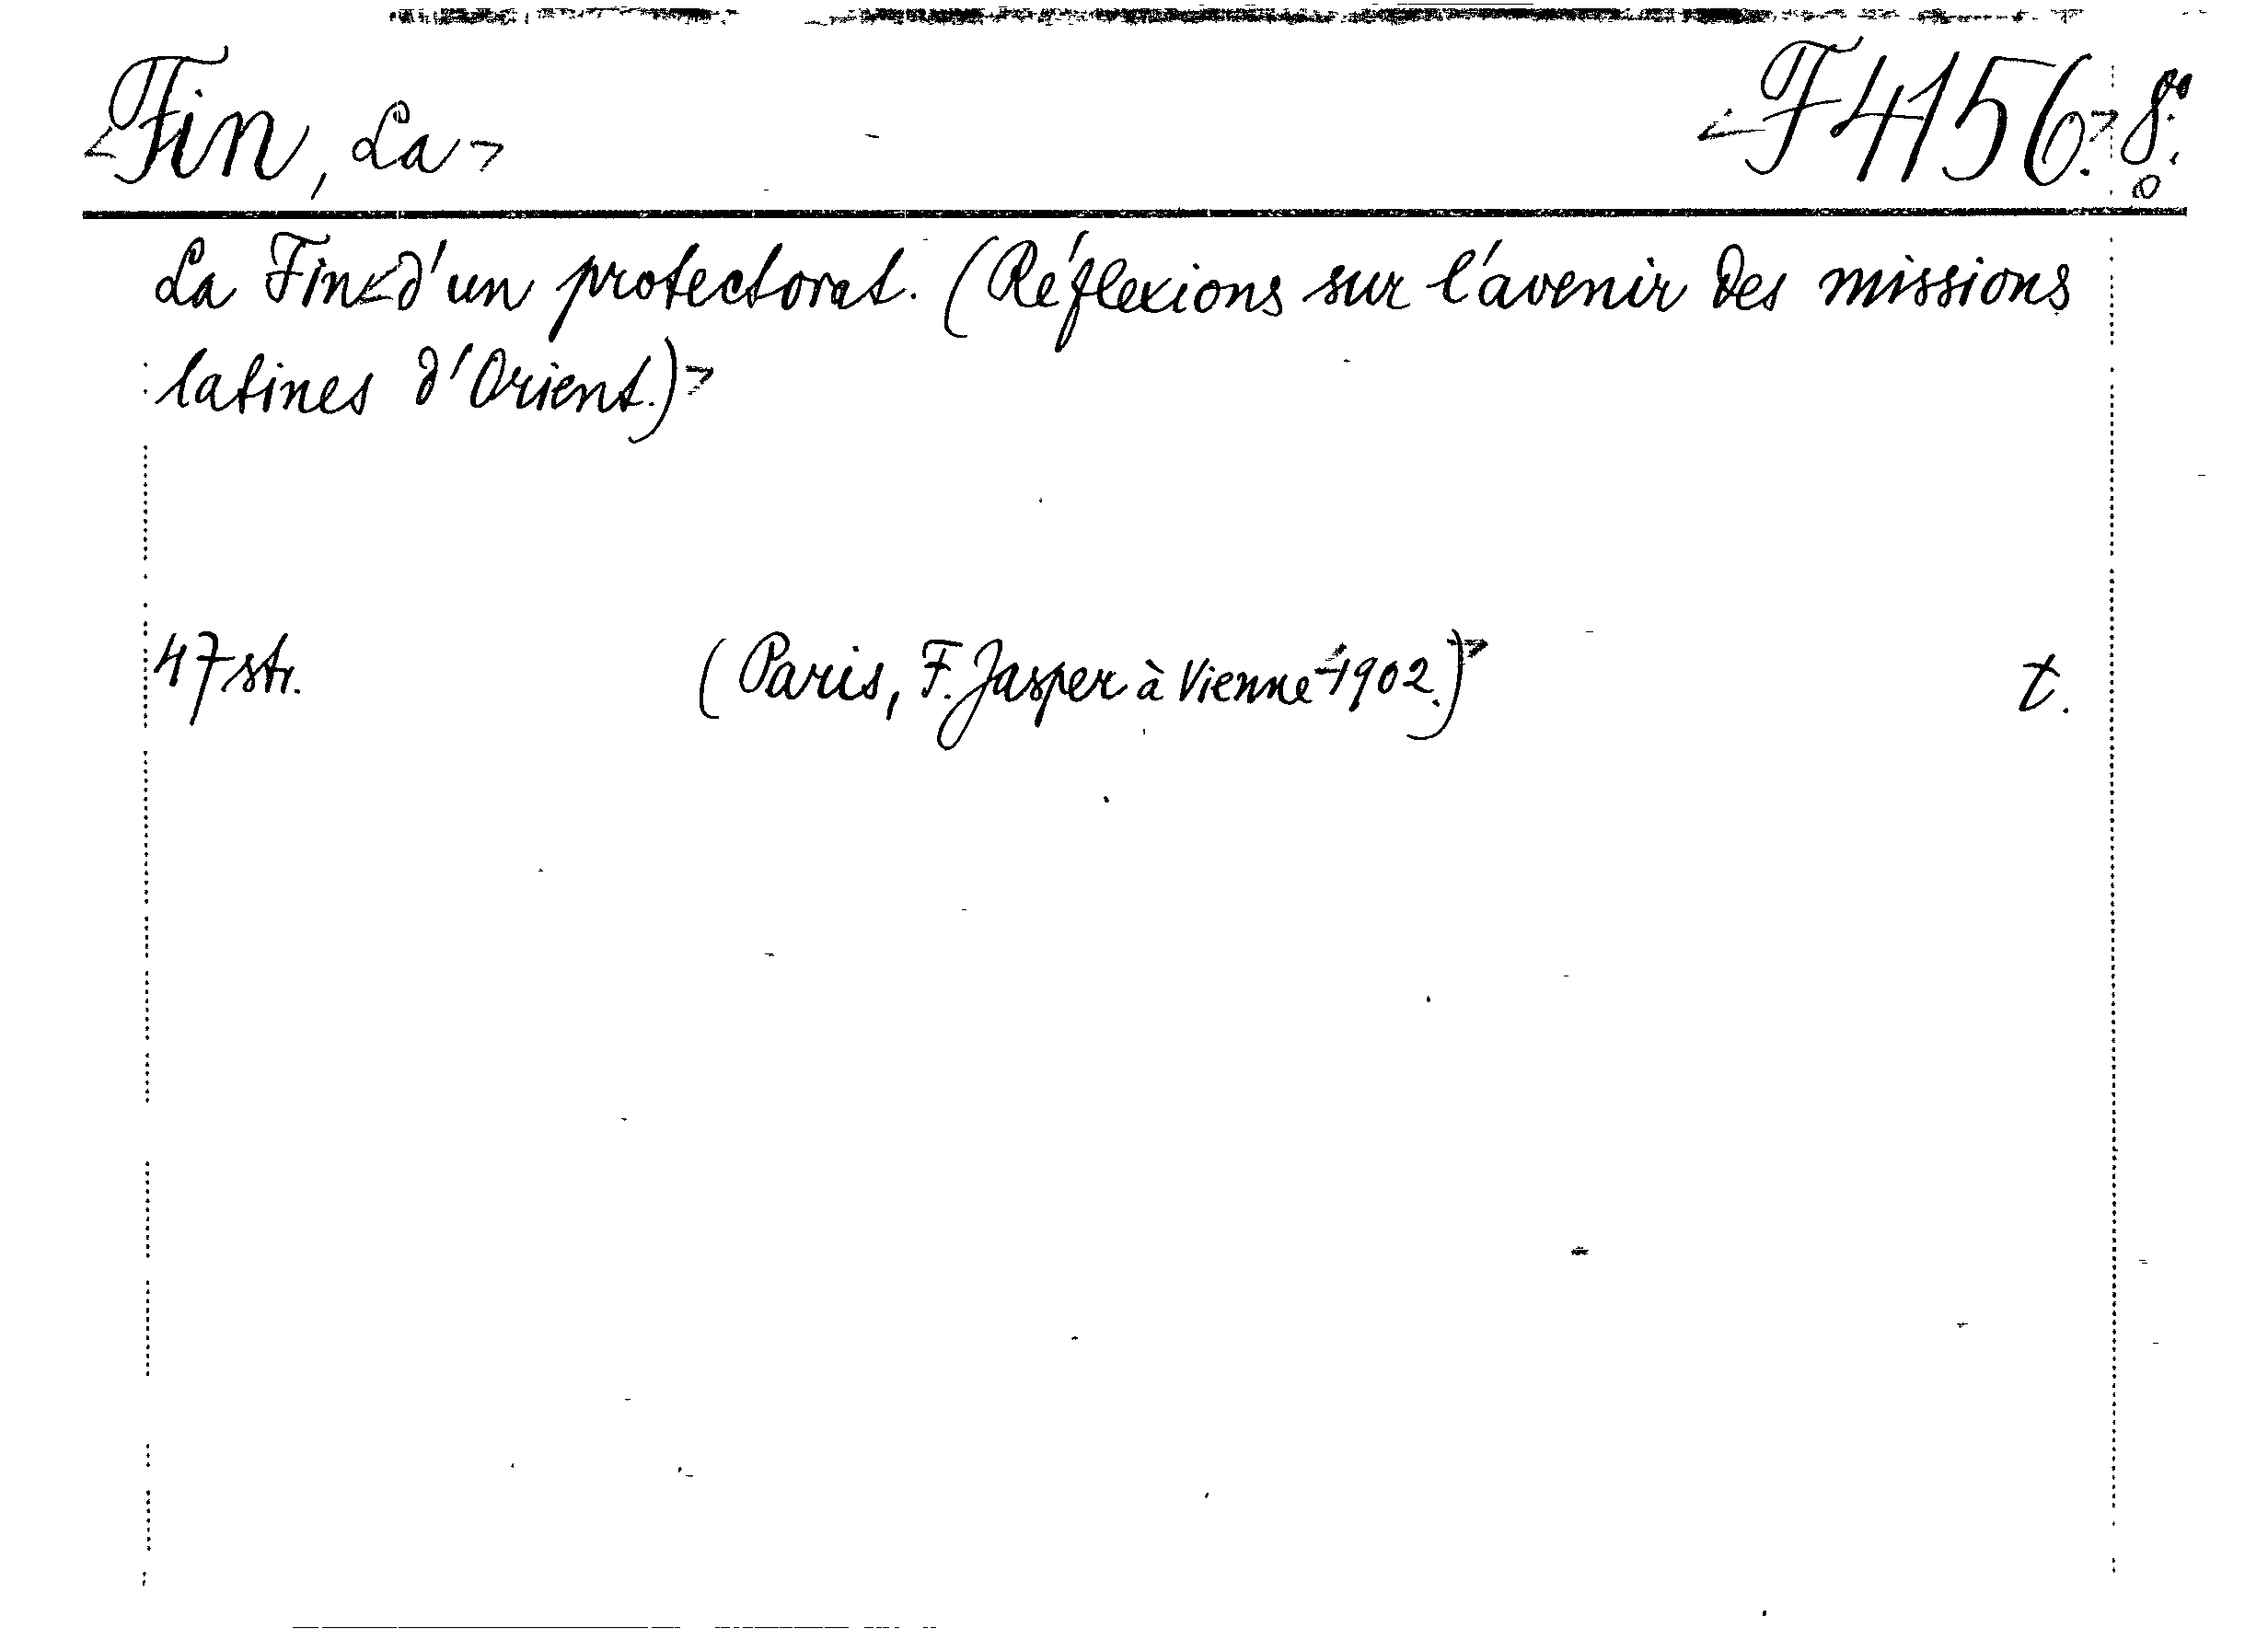 <Fin, La> <F 4156.> 8º.
La Fin<d'un protectorat. (Réflexions sur l'avenir des missions
latines d'Orient.)>
47 str. (Paris, F. Jasper à Vienne 1902.)> t.